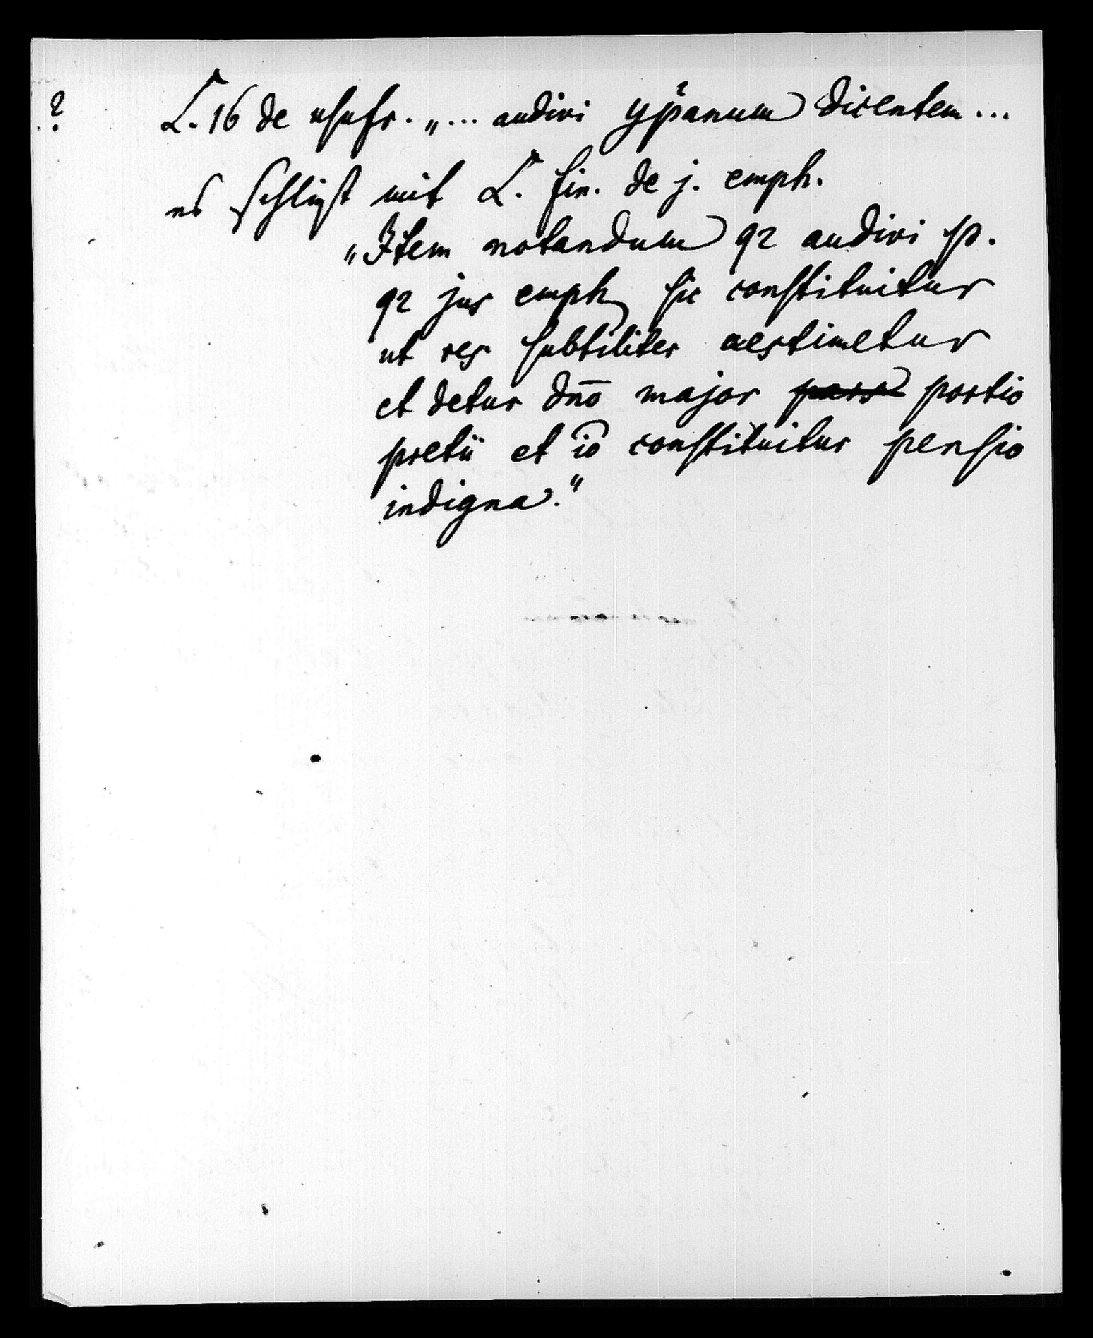 ? L. 16 de usufr. „... audivi ypanum dicentem...
es schließt mit L. fin. de j. emph.
„Item notandum qz audivi sp.
qz jus emph. sic constituitur
ut res subtiliter aestimetur
et detur dño major pars portio
pretii et iō constituitur pensio
indigna."